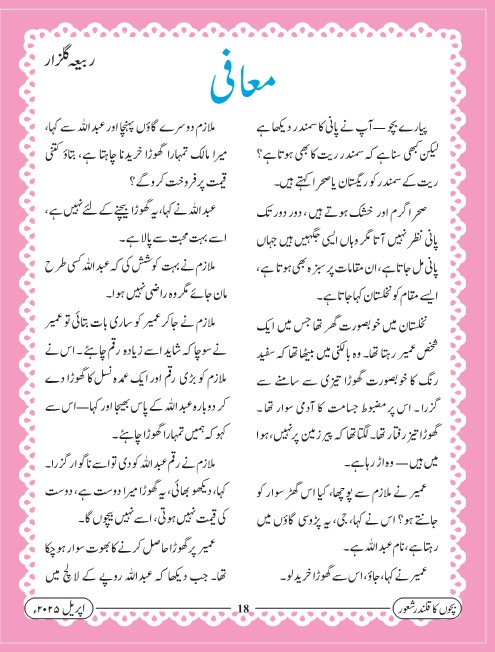 ربیعہ گلزار
معافی
پیارے بچو — آپ نے پانی کا سمندر دیکھا ہے
لیکن کبھی سنا ہے کہ سمندر ریت کا بھی ہوتا ہے؟
ریت کے سمندر کو ریگستان یا صحرا کہتے ہیں۔
صحرا گرم اور خشک ہوتے ہیں، دور دور تک
پانی نظر نہیں آتا مگر وہاں ایسی جگہیں ہیں جہاں
پانی مل جاتا ہے، ان مقامات پر سبزہ بھی ہوتا ہے،
ایسے مقام کو نخلستان کہا جاتا ہے۔
نخلستان میں خوبصورت گھر تھا جس میں ایک
شخص عمیر رہتا تھا۔ وہ بالکنی میں بیٹھا تھا کہ سفید
رنگ کا خوبصورت گھوڑا تیزی سے سامنے سے
گزرا۔ اس پر مضبوط جسامت کا آدمی سوار تھا۔
گھوڑا تیز رفتار تھا۔ لگتا تھا کہ پیر زمین پر نہیں، ہوا
میں ہیں — وہ اڑ رہا ہے۔
عمیر نے ملازم سے پوچھا، کیا اس گھڑ سوار کو
جانتے ہو؟ اس نے کہا، جی، یہ پڑوسی گاؤں میں
رہتا ہے، نام عبداللہ ہے۔
عمیر نے کہا، جاؤ، اس سے گھوڑا خرید لو۔
ملازم دوسرے گاؤں پہنچا اور عبداللہ سے کہا،
میرا مالک تمہارا گھوڑا خریدنا چاہتا ہے، بتاؤ کتنی
قیمت پر فروخت کرو گے؟
عبداللہ نے کہا، یہ گھوڑا بیچنے کے لئے نہیں ہے،
اسے بہت محبت سے پالا ہے۔
ملازم نے بہت کوشش کی کہ عبداللہ کسی طرح
مان جائے مگر وہ راضی نہیں ہوا۔
ملازم نے جا کر عمیر کو ساری بات بتائی تو عمیر
نے سوچا کہ شاید اسے زیادہ رقم چاہئے۔ اس نے
ملازم کو بڑی رقم اور ایک عمدہ نسل کا گھوڑا دے
کر دوبارہ عبداللہ کے پاس بھیجا اور کہا — اس سے
کہو کہ ہمیں تمہارا گھوڑا چاہئے۔
ملازم نے رقم عبداللہ کو دی تو اسے ناگوار گزرا۔
کہا، دیکھو بھائی، یہ گھوڑا میرا دوست ہے، دوست
کی قیمت نہیں ہوتی، اسے نہیں بیچوں گا۔
عمیر پر گھوڑا حاصل کرنے کا بھوت سوار ہو چکا
تھا۔ جب دیکھا کہ عبداللہ روپے کے لالچ میں
بچوں کا قلندر شعور
18
اپریل ۲۰۲۵ء